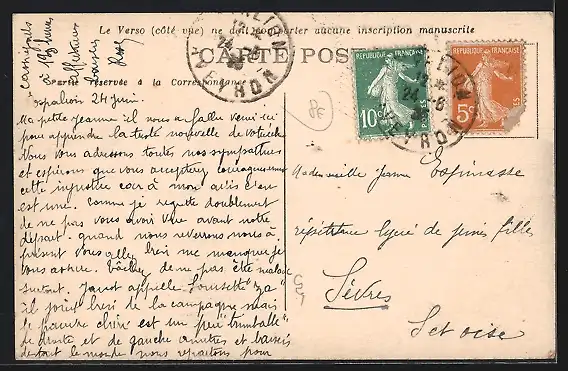 Le Verso (côté vue) ne doit comporter aucune inscription manuscrite
CARTE POS
Partie réservée à la Correspondance
Espalion 24 juin.
Ma petite Jeanne il nous a fallu venir ici
pour apprendre la triste nouvelle de votre
Nous vous adressons toutes nos sympathies
et espérons que vous accepterez courageusement
cette injustice car à mon avis c'en
est une. Comme je regrette doublement
de ne pas vous avoir vue avant notre
départ. quand nous reverrons nous à
présent vous allez bien me manquer je
vous assure. Tâchez de ne pas être malade
surtout. "za"
il jouit bien de la campagne mais
le pauvre chéri est un peu "trimballé"
de droite et de gauche amitiés et baisers
de tout le monde nous repartons pour
à
baisers
ESPALION
AVEYRON
RÉPUBLIQUE FRANÇAISE
10c
POSTES
RÉPUBLIQUE FRANÇAISE
5c
ESPALION
24 -6
AVEYRON
38
Mademoiselle Jeanne Espinasse
répétitrice lycée de jeunes filles
Sèvres
S et Oise